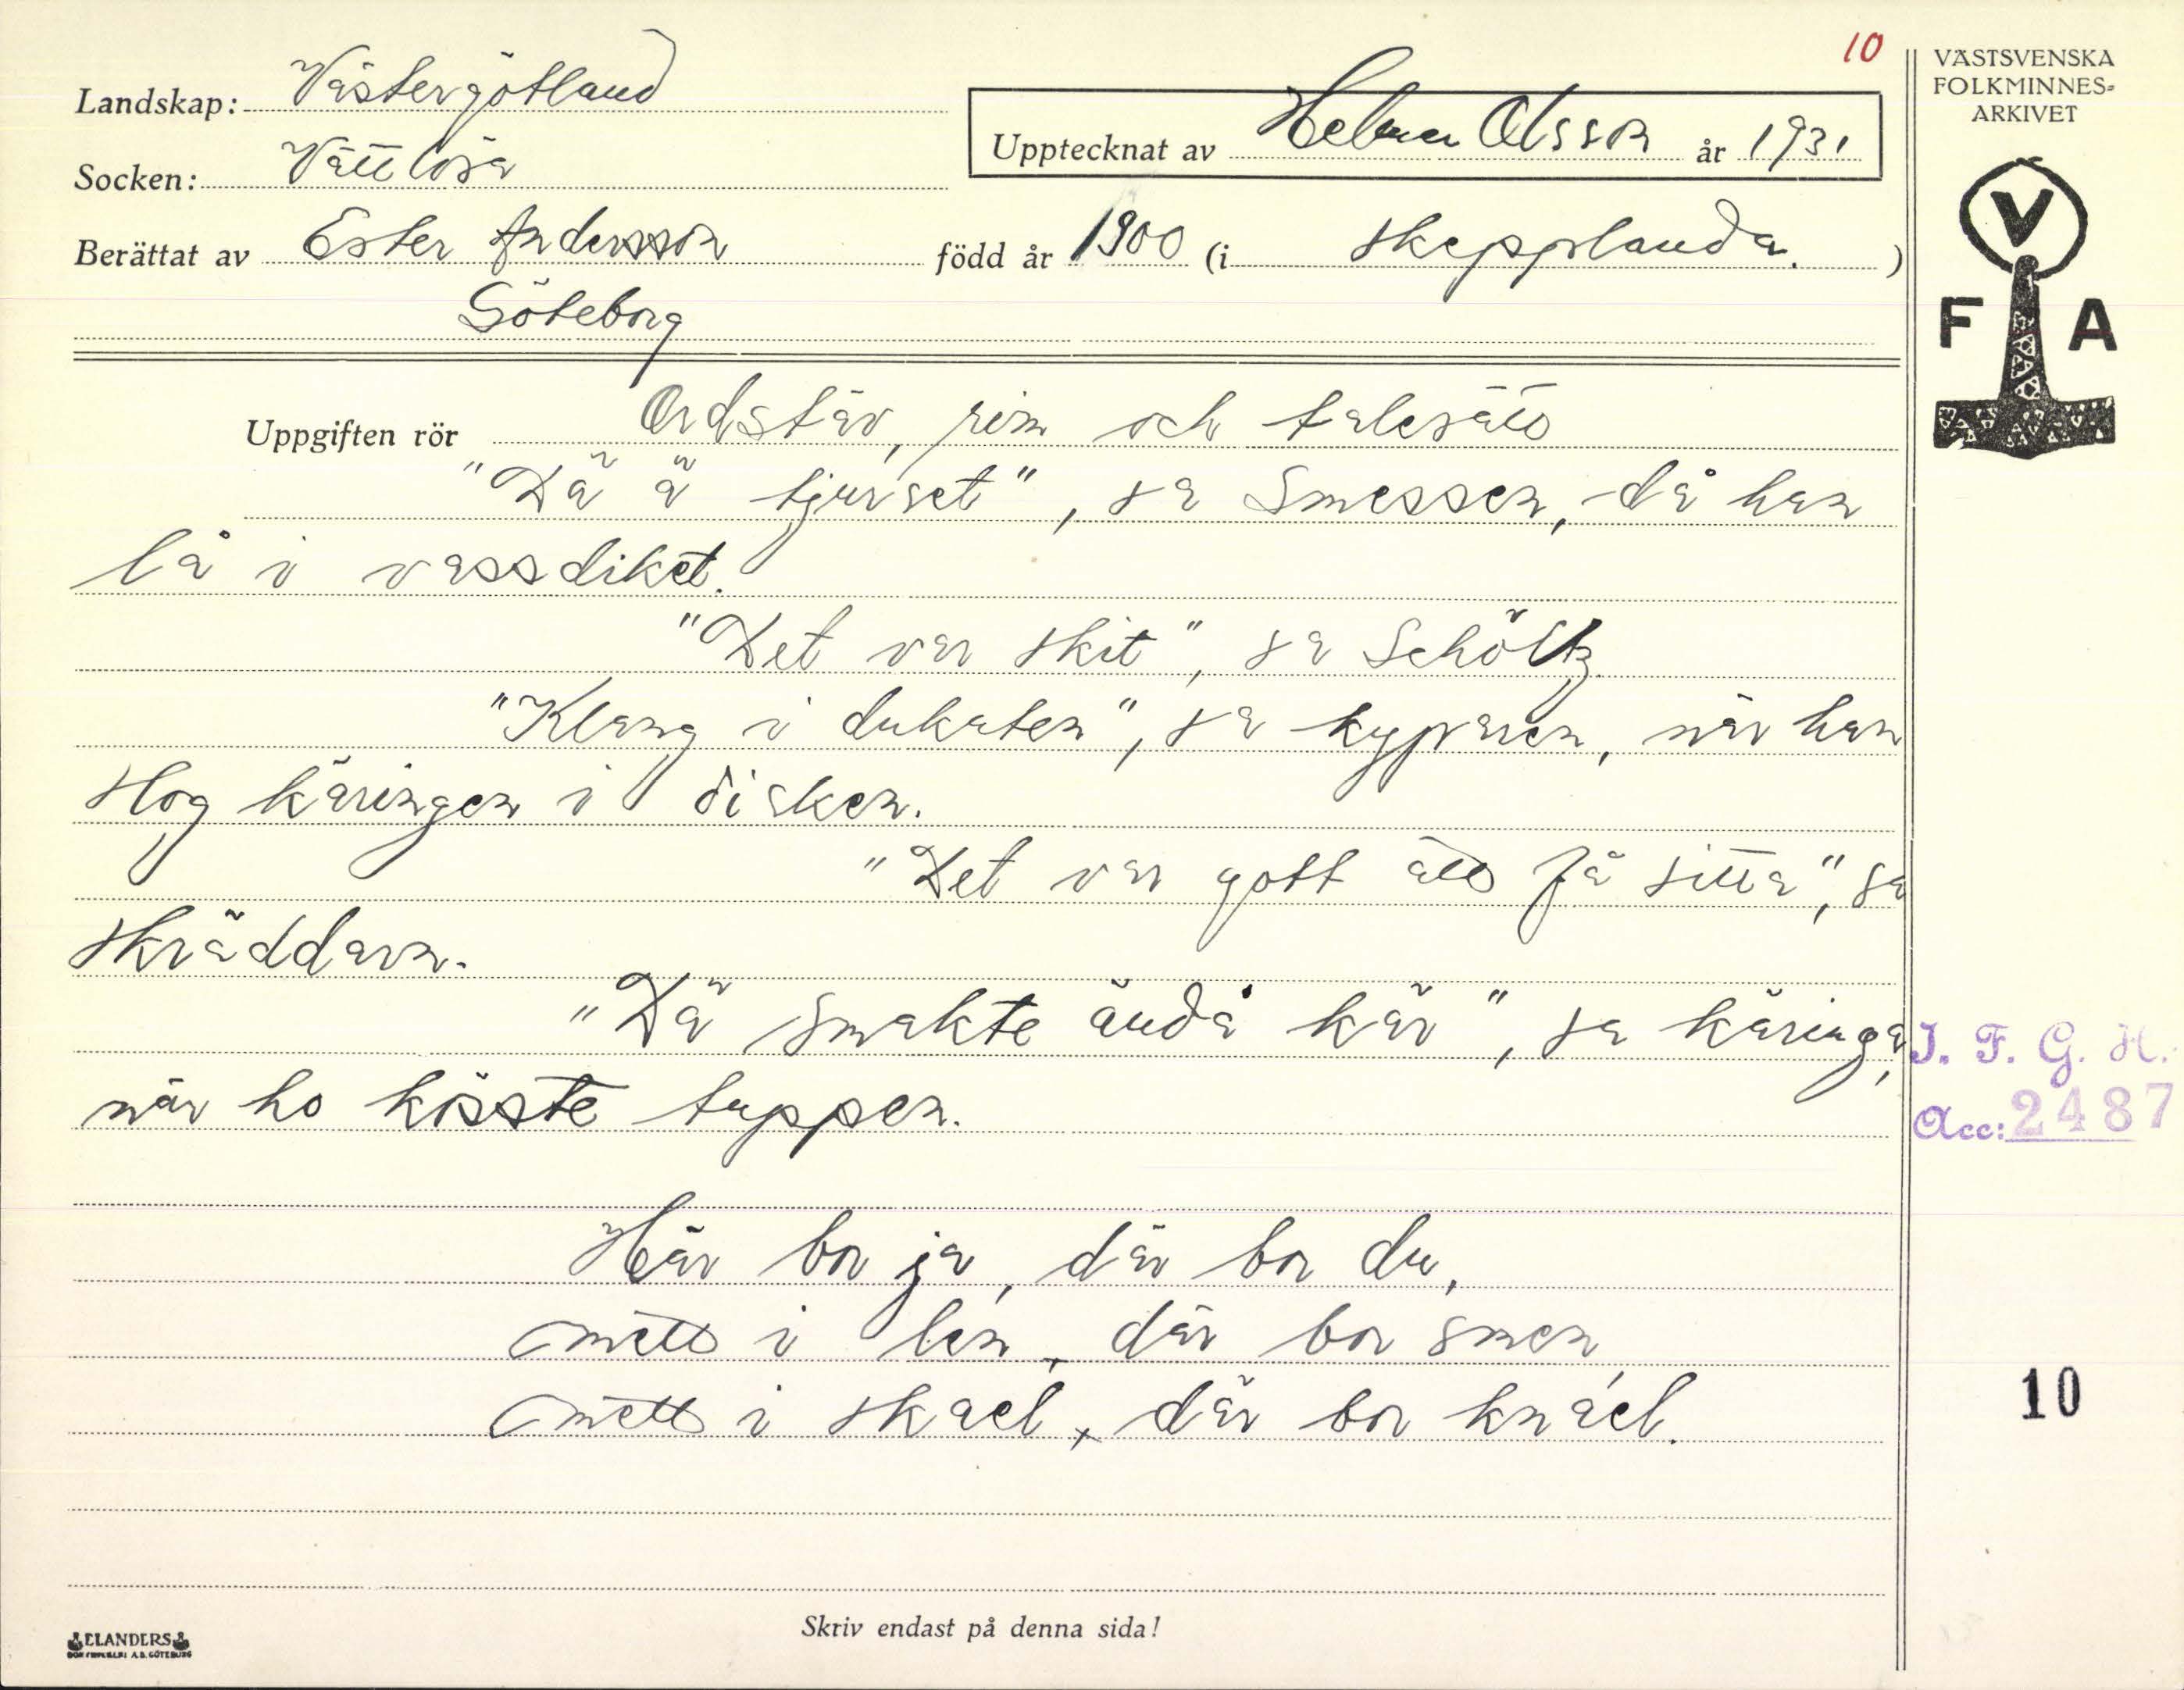 10
VÄSTSVENSKA
FOLKMINNES-
ARKIVET
Landskap: Västergötland
Upptecknat av Helmer Olsson år 1931
Socken: Vättlösa
Berättat av Ester Andersson född år 1900 (i Skepplanda.)
Göteborg
V
F A
Uppgiften rör Ordstäv, rim och talesätt
"Dä ä tjusset", sa Smessen, då han
lå i vassdiket.
"Det var skit", sa Schöltz
"Klang i dukaten", sa kyparen, när han
slog käringen i disken.
"Det var gott att få sitta", sa
skräddarn.
"Dä smakte ändå kär", sa käringa,
när ho kösste tuppen.
J. F. G. H.
Acc: 2487
Här bor ja, där bor du,
mett i len, där bor smen,
mett i skael, där bor knael.
10
Skriv endast på denna sida!
ELANDERS
BOKTRYCKERI A.B. GÖTEBORG